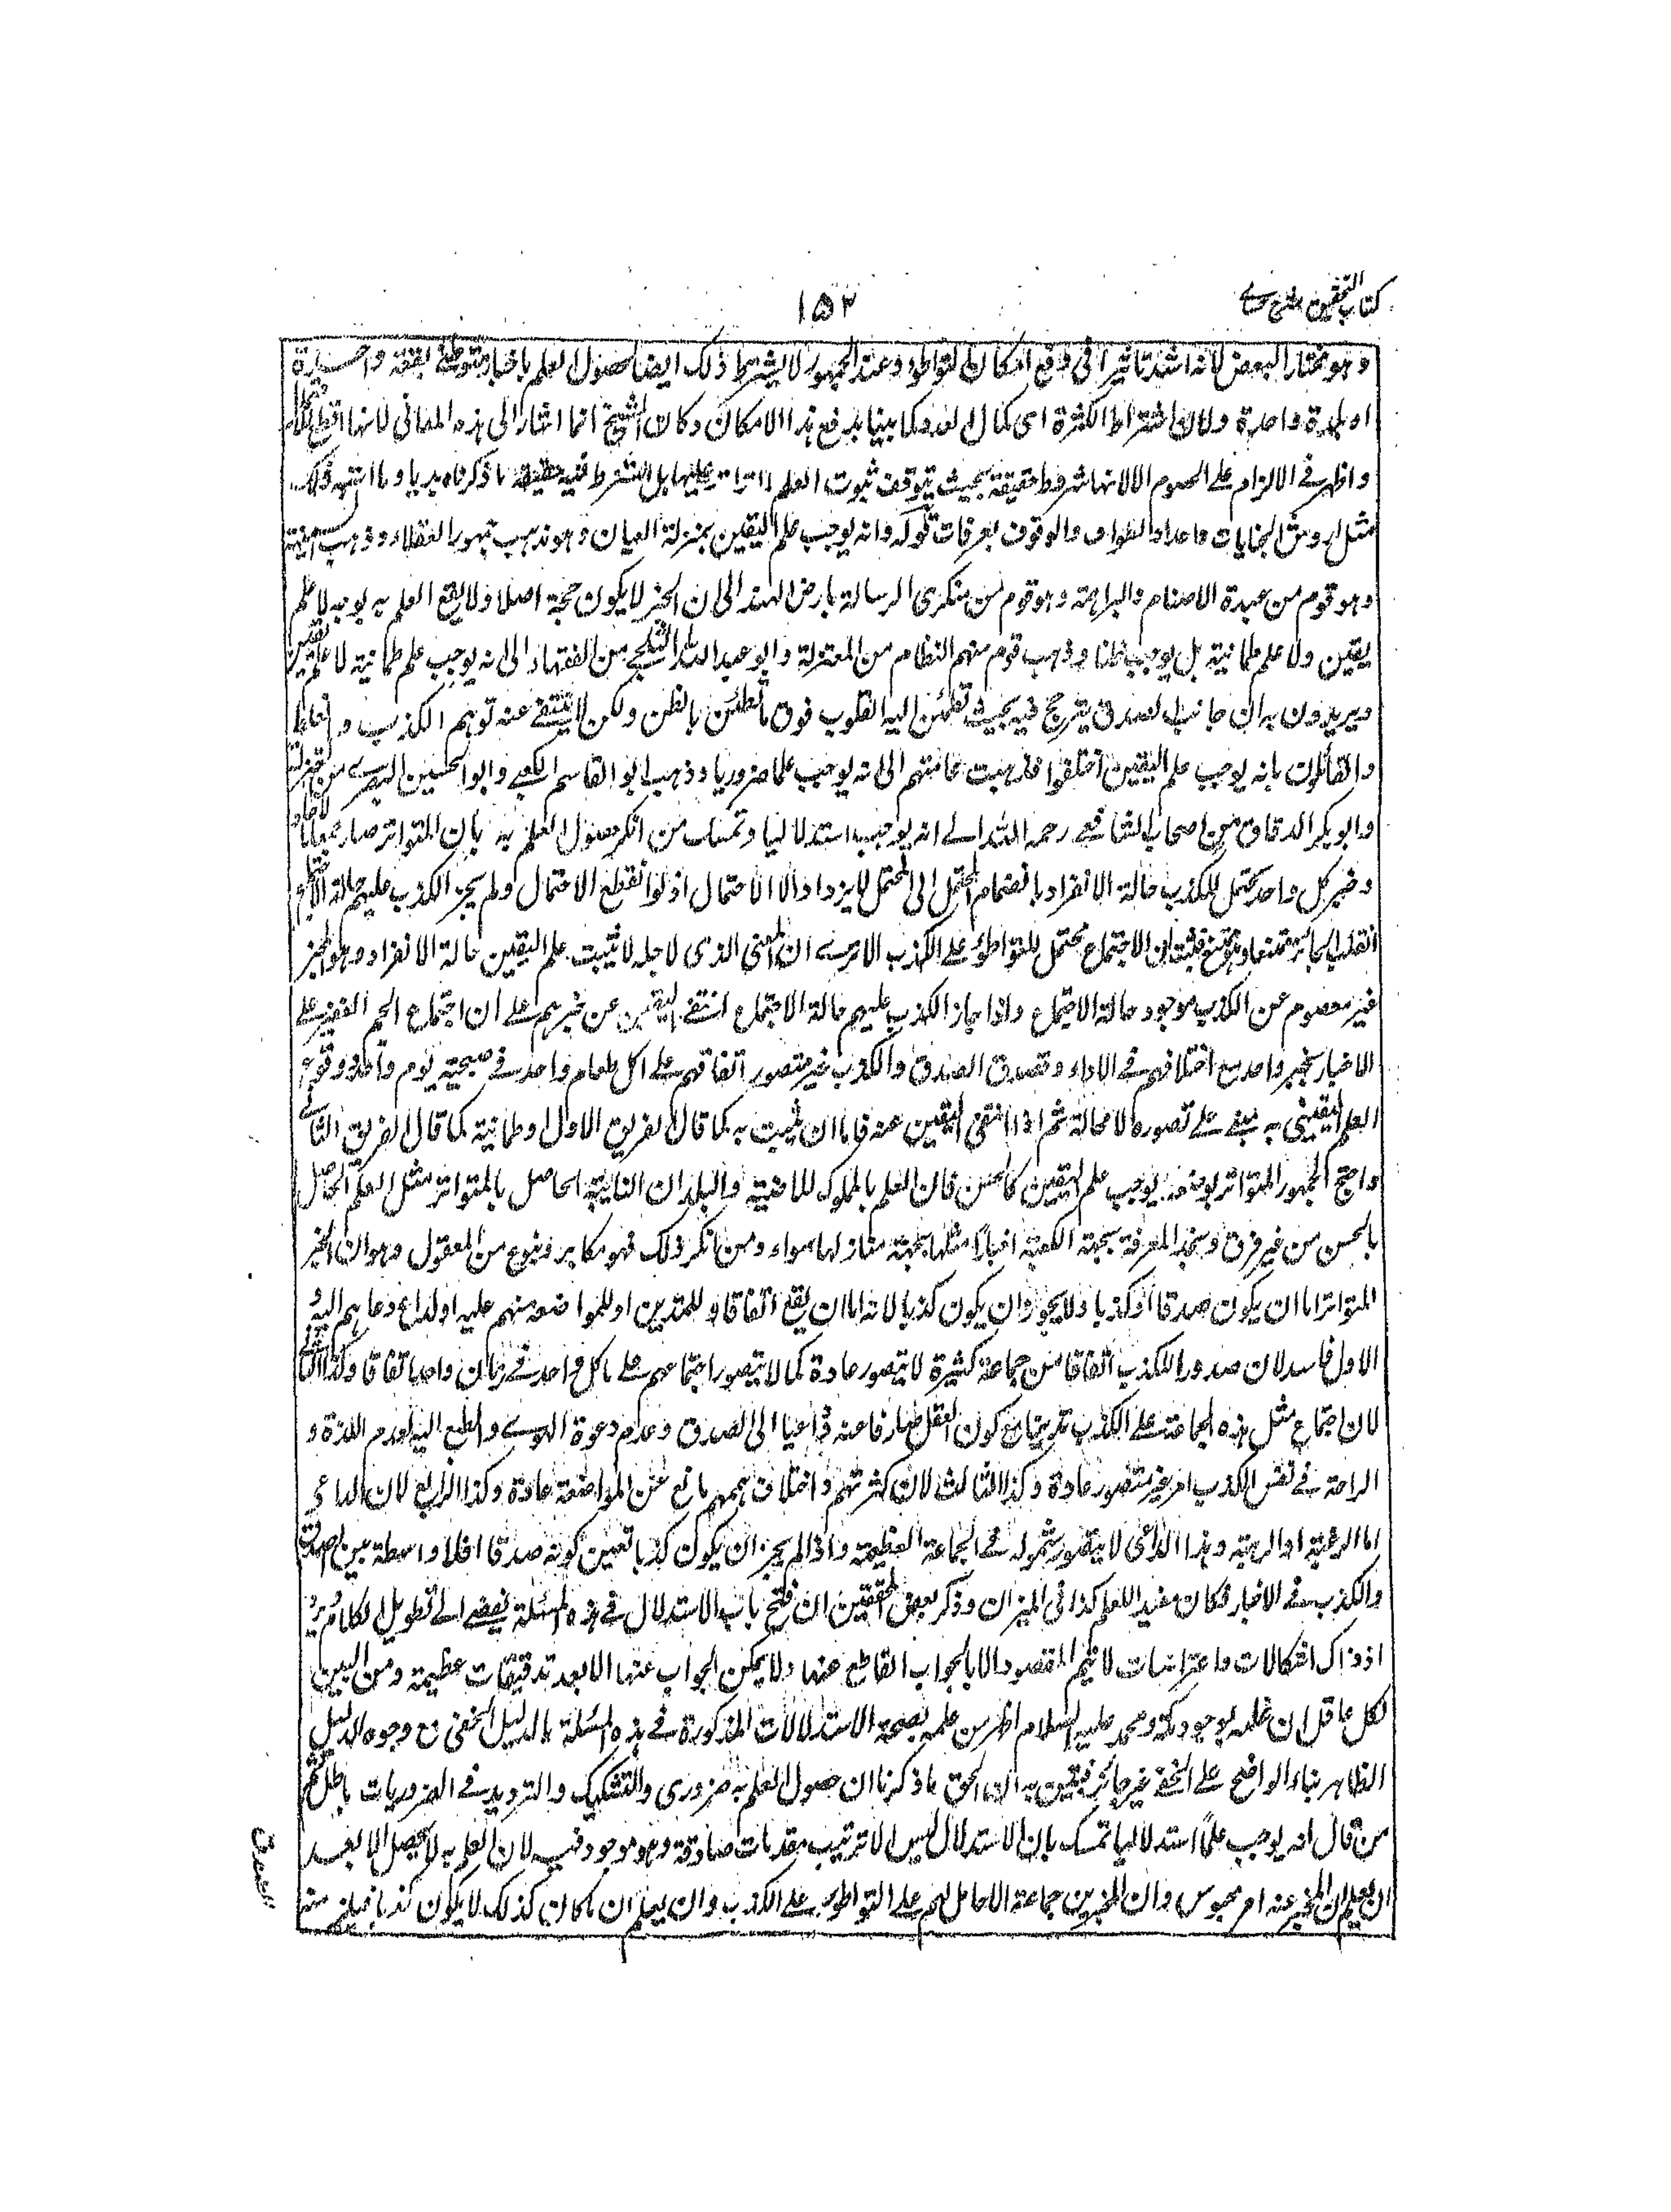 كتاب التحقيق شرح حسامى
١٥٢
وهو مختار البعض لانه اشد تاثيرا فى دفع امكان التواطؤ وعند الجمهور لا يشترط ذلك ايضا لحصول العلم باخبار متوطنى بقعة واحدة
او بلدة واحدة ولان اشتراط الكثرة اى كمال العدد كما بينا يدفع هذا الامكان وكان الشيخ انما اشار الى هذه المعانى لانها اقطع للاحتمال
واظهر فى الالزام على الخصوم الا لانها شرط حقيقة بحيث يتوقف ثبوت العلم بالتواتر عليها بل الشرط فيه حقيقة ما ذكرناه يريا وما اشبه ذلك
مثل اروش الجنايات واعداد الطواف والوقوف بعرفات قوله وانه يوجب علم اليقين بمنزلة العيان وهو مذهب جمهور العقلاء وذهب السمنية
وهو قوم من عبدة الاصنام والبراهمة وهو قوم من منكرى الرسالة بارض الهند الى ان الخبر لا يكون حجة اصلا ولا يقع العلم به بوجه لا علم
يقين ولا علم طمانية بل يوجب ظنا وذهب قوم منهم النظام من المعتزلة وابو عبد الله الثلجى من الفقهاء الى انه يوجب علم طمانية لا علم يقين
ويريدون به ان جانب الصدق يترجح فيه بحيث تطمئن اليه القلوب فوق ما تطمئن بالظن ولكن لا ينتفى عنه توهم الكذب والغلط
والقائلون بانه يوجب علم اليقين اختلفوا فذهبت عامتهم الى انه يوجب علما ضروريا وذهب ابو القاسم الكعبى وابو الحسين البصرى من المعتزلة
وابو بكر الدقاق من اصحاب الشافعى رحمه الله الى انه يوجب استدلاليا وتمسك من انكر حصول العلم به بان المتواتر صار جمعا بالاحاد
وخبر كل واحد محتمل للكذب حالة الانفراد بانضمام المحتمل الى المحتمل لا يزداد الا الاحتمال اذ لو انقطع الاحتمال ولم يجز الكذب عليهم حالة الاجتماع
انقلب الجائز ممتنعا وهو ممتنع فثبت ان الاجتماع محتمل للتواطؤ على الكذب الا ترى ان المعنى الذى لاجله لا يثبت علم اليقين حالة الانفراد وهو المخبر
غير معصوم عن الكذب موجود حالة الاجتماع واذا جاز الكذب عليهم حالة الاجتماع انتفى اليقين عن خبرهم على ان اجتماع الجم الغفير على
الاخبار بخبر واحد مع اختلافهم فى الاداء وقصد الصدق والكذب غير متصور اتفاقهم على اكل طعام واحد فى صبيحة يوم واحد ووقوع
العلم اليقينى به مبنى على تصوره لا محالة ثم اذا انتفى اليقين عنه فاما ان يثبت به كما قال الفريق الاول او طمانية كما قال الفريق الثانى
واحتج الجمهور المتواتر بوضعه يوجب علم اليقين كالحس فان العلم بالملوك الماضية والبلدان النائية الحاصل بالمتواتر مثل العلم الحاصل
بالحس من غير فرق ونجد المعرفة بجهة الكعبة اخبارا مثلها بجهة منازلها سواء ومن انكر ذلك فهو مكابر وبنوع من المعقول وهو ان الخبر
المتواتر اما ان يكون صدقا او كذبا ولا يجوز ان يكون كذبا لانه اما ان يقع اتفاقا او للتدين او للمواضعة منهم عليه او لداع دعاهم اليه و
الاول فاسد لان صدور الكذب اتفاقا من جماعة كثيرة لا يتصور عادة كما لا يتصور اجتماعهم على ماكل واحد فى زمان واحد اتفاقا وكذا الثانى
لان اجتماع مثل هذه الجماعة على الكذب تدينا مع كون العقل صارفا عنه داعيا الى الصدق وعدم دعوة الهوى والطبع اليه لعدم اللذة و
الراحة فى نفس الكذب امر غير متصور عادة وكذا الثالث لان كثرتهم واختلاف هممهم مانع عن المواضعة عادة وكذا الرابع لان الداعى
اما الرغبة او الرهبة وهذا الداعى لا يتصور شموله فى الجماعة العظيمة واذا لم يجز ان يكون كذبا تعين كونه صدقا اذ لا واسطة بين الصدق
والكذب فى الاخبار فكان مفيدا للعلم كذا فى الميزان وذكر بعض المحققين ان فتح باب الاستدلال فى هذه المسئلة يفضى الى تطويل الكلام ويزد
اذ ذاك اشكالات واعتراضات لا يتم المقصود الا بالجواب القاطع عنها ولا يمكن الجواب عنها الا بعد تدقيقات عظيمة ومن البين
لكل عاقل ان علمه بوجود مكة ومحمد عليه السلام اظهر من علمه بصحة الاستدلالات المذكورة فى هذه المسئلة بالدليل الخفى مع وجوه الدليل
الظاهر بناء الواضح على الخفى غير جائز فتبين به ان الحق ما ذكرنا ان حصول العلم به ضرورى والتشكيك والترديد فى الضروريات باطل ثم
من قال انه يوجب علما استدلاليا تمسك بان الاستدلال ليس الا ترتيب مقدمات صادقة وهو موجود فيه لان العلم به لا يحصل الا بعد
ان يعلم ان المخبر عنه امر محسوس وان المخبرين جماعة لا حامل لهم على التواطؤ على الكذب وان يعلم ان ما كان كذلك لا يكون كذبا فيلزم منه
الصدق